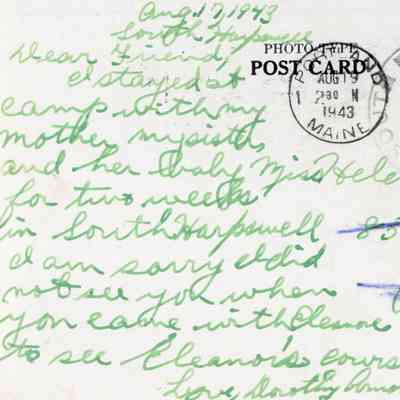 Aug. 17, 1943
South Harpswell
PHOTO-TYPE
POST CARD
PORTLAND
AUG 19
1 230 M
1943
MAINE
Dear Friend,
I stayed at
camp with my
mother my sister
and her baby Miss Hele
for two weeks
in South Harpswell 85
I am sorry I did
not see you when
you came with Eleanore
to see Eleanor's cours
Love, Dorothy